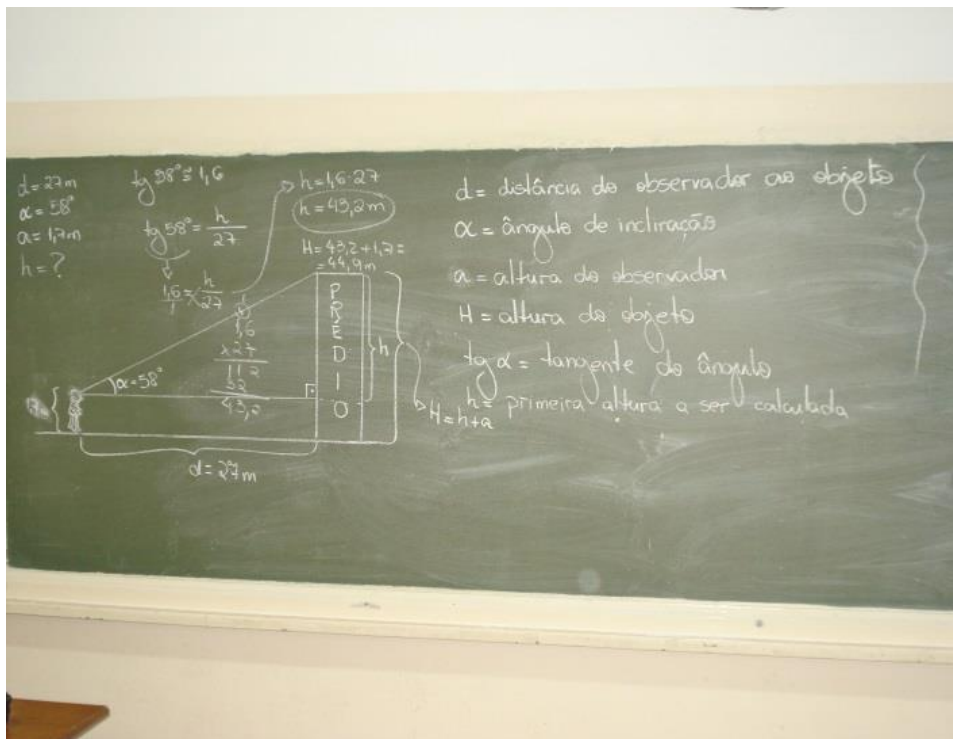 d = 27m
α = 58°
a = 1,7m
h = ?
tg 58° ≅ 1,6
tg 58° = h/27
1,6/1 = h/27
h = 1,6 · 27
h = 43,2 m
H = 43,2 + 1,7 =
= 44,9m
1,6
x 27
112
32
43,2
α = 58°
PRÉDIO
h
H = h + a
d = 27m
d = distância do observador ao objeto
α = ângulo de inclinação
a = altura do observador
H = altura do objeto
tg α = tangente do ângulo
h = primeira altura a ser calculada